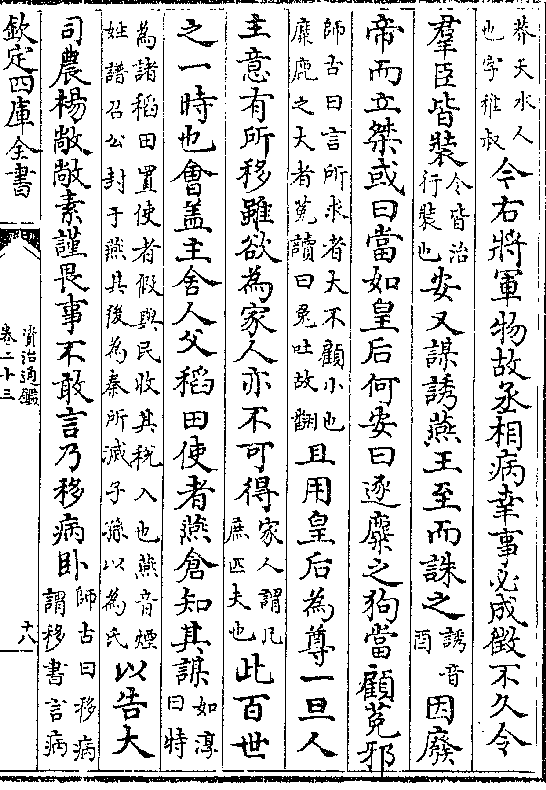 莽天水人
也字稚叔
今右將軍物故丞相病幸事必成徴不久令
羣臣皆裝
令皆治
行裝也
安又謀誘燕王至而誅之
誘音
酉
因廢
帝而立桀或曰當如皇后何安曰逐麋之狗當顧菟邪
師古曰言所求者大不顧小也
麋鹿之大者菟讀曰兎吐故翻
且用皇后為尊一旦人
主意有所移雖欲為家人亦不可得
家人謂凡
庶匹夫也
此百世
之一時也會盖主舍人父稻田使者燕倉知其謀
如淳
曰特
為諸稻田置使者假與民收其稅入也燕音煙
姓譜召公封于燕其後為秦所滅子孫以為氏
以告大
司農楊敞敞素謹畏事不敢言乃移病卧
師古曰移病
謂移書言病
欽定四庫全書
資治通鑑
卷二十三
十八